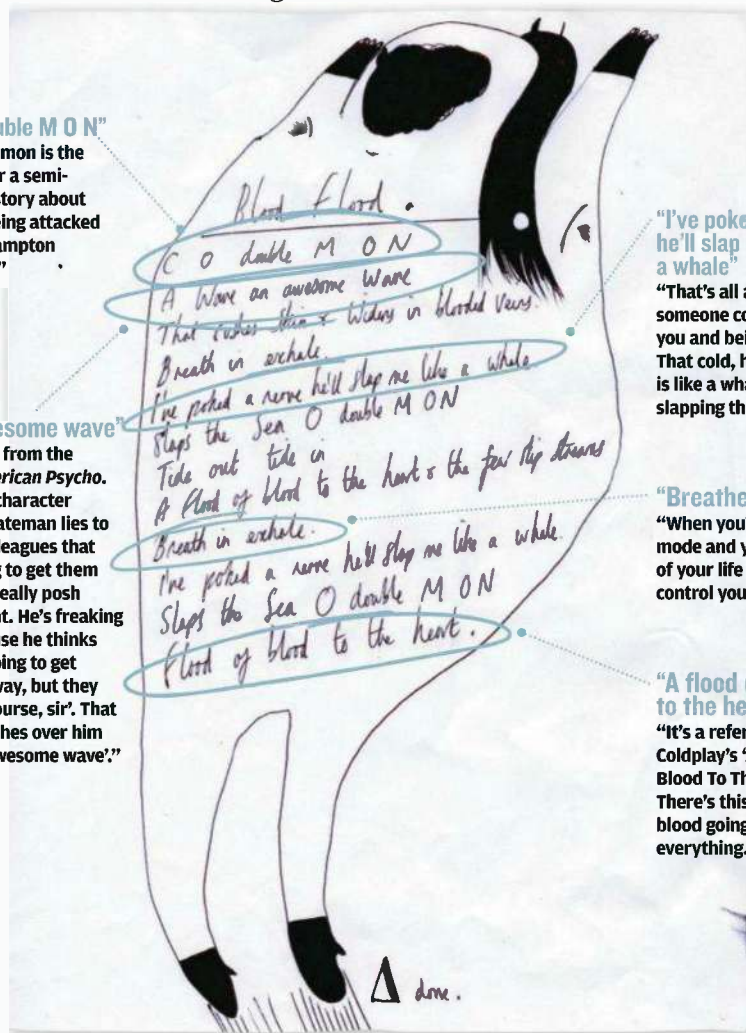 uble M O N"
mon is the
r a semi-
story about
eing attacked
ampton
"
esome wave"
from the
erican Psycho.
character
ateman lies to
leagues that
g to get them
eally posh
nt. He's freaking
use he thinks
oing to get
way, but they
ourse, sir'. That
shes over him
wesome wave'."
Blood Flood.
C O double M O N
A Wave an awesome Wave
That rushes skin & Widens in blooded Veins.
Breath in exhale.
I've poked a nerve he'll slap me like a whale
Slaps the Sea O double M O N
Tide out tide in
A flood of blood to the heart & the fear slip streams
Breath in exhale.
I've poked a nerve he'll slap me like a whale.
Slaps the Sea O double M O N
Flood of blood to the heart.
Δ done.
"I've poke
he'll slap
a whale"
"That's all a
someone co
you and bei
That cold, h
is like a wha
slapping th
"Breathe
"When you
mode and y
of your life
control you
"A flood
to the he
"It's a refer
Coldplay's '
Blood To Th
There's this
blood going
everything.